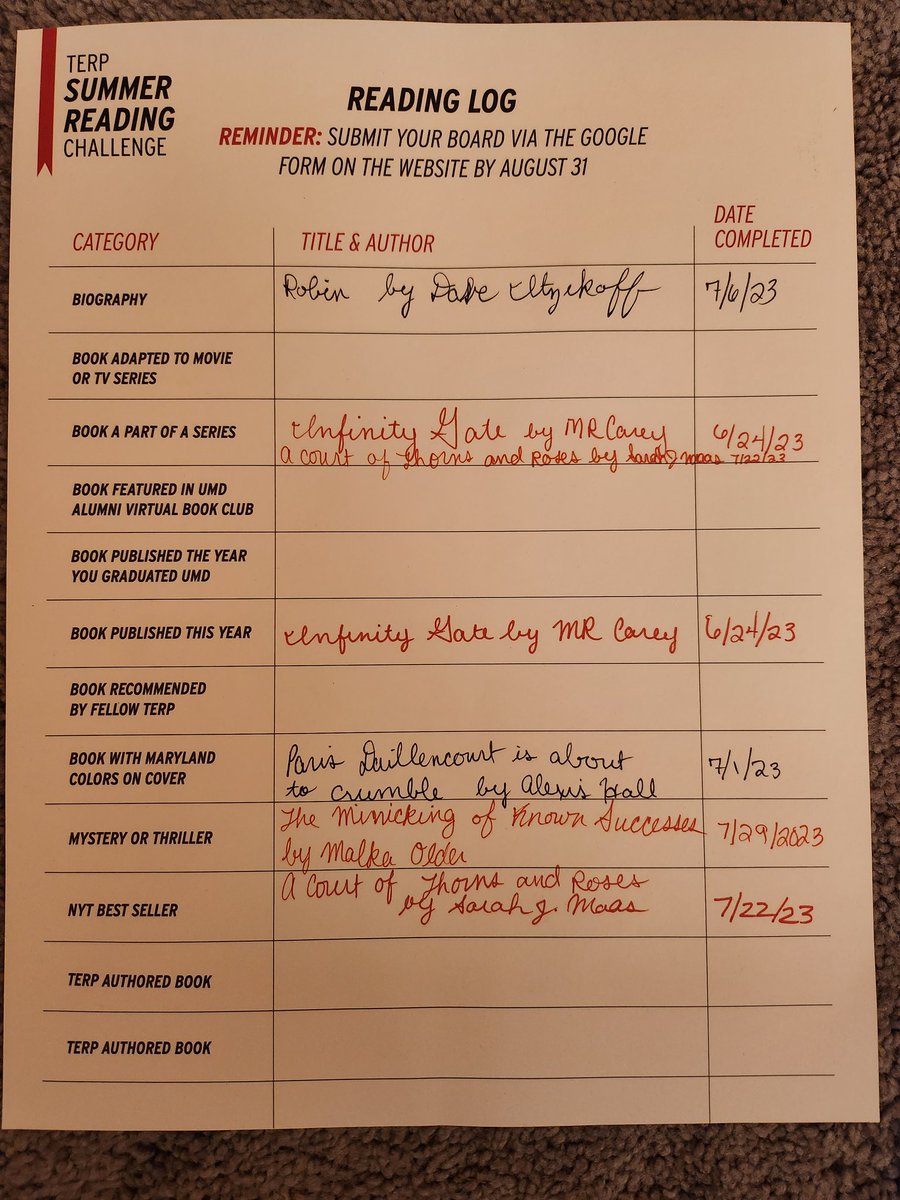 TERP
SUMMER
READING
CHALLENGE
READING LOG
REMINDER: SUBMIT YOUR BOARD VIA THE GOOGLE
FORM ON THE WEBSITE BY AUGUST 31
CATEGORY
TITLE & AUTHOR
DATE
COMPLETED
BIOGRAPHY
Robin by Dave Itzikoff
7/6/23
BOOK ADAPTED TO MOVIE
OR TV SERIES
BOOK A PART OF A SERIES
Infinity Gate by MR Carey
6/24/23
A Court of Thorns and Roses by Sarah J Maas 7/22/23
BOOK FEATURED IN UMD
ALUMNI VIRTUAL BOOK CLUB
BOOK PUBLISHED THE YEAR
YOU GRADUATED UMD
BOOK PUBLISHED THIS YEAR
Infinity Gate by MR Carey
6/24/23
BOOK RECOMMENDED
BY FELLOW TERP
BOOK WITH MARYLAND
COLORS ON COVER
Paris Daillencourt is about
to crumble by Alexis Hall
7/1/23
MYSTERY OR THRILLER
The Mimicking of Known Successes
by Malka Older
7/29/2023
NYT BEST SELLER
A Court of Thorns and Roses
by Sarah J. Maas
7/22/23
TERP AUTHORED BOOK
TERP AUTHORED BOOK